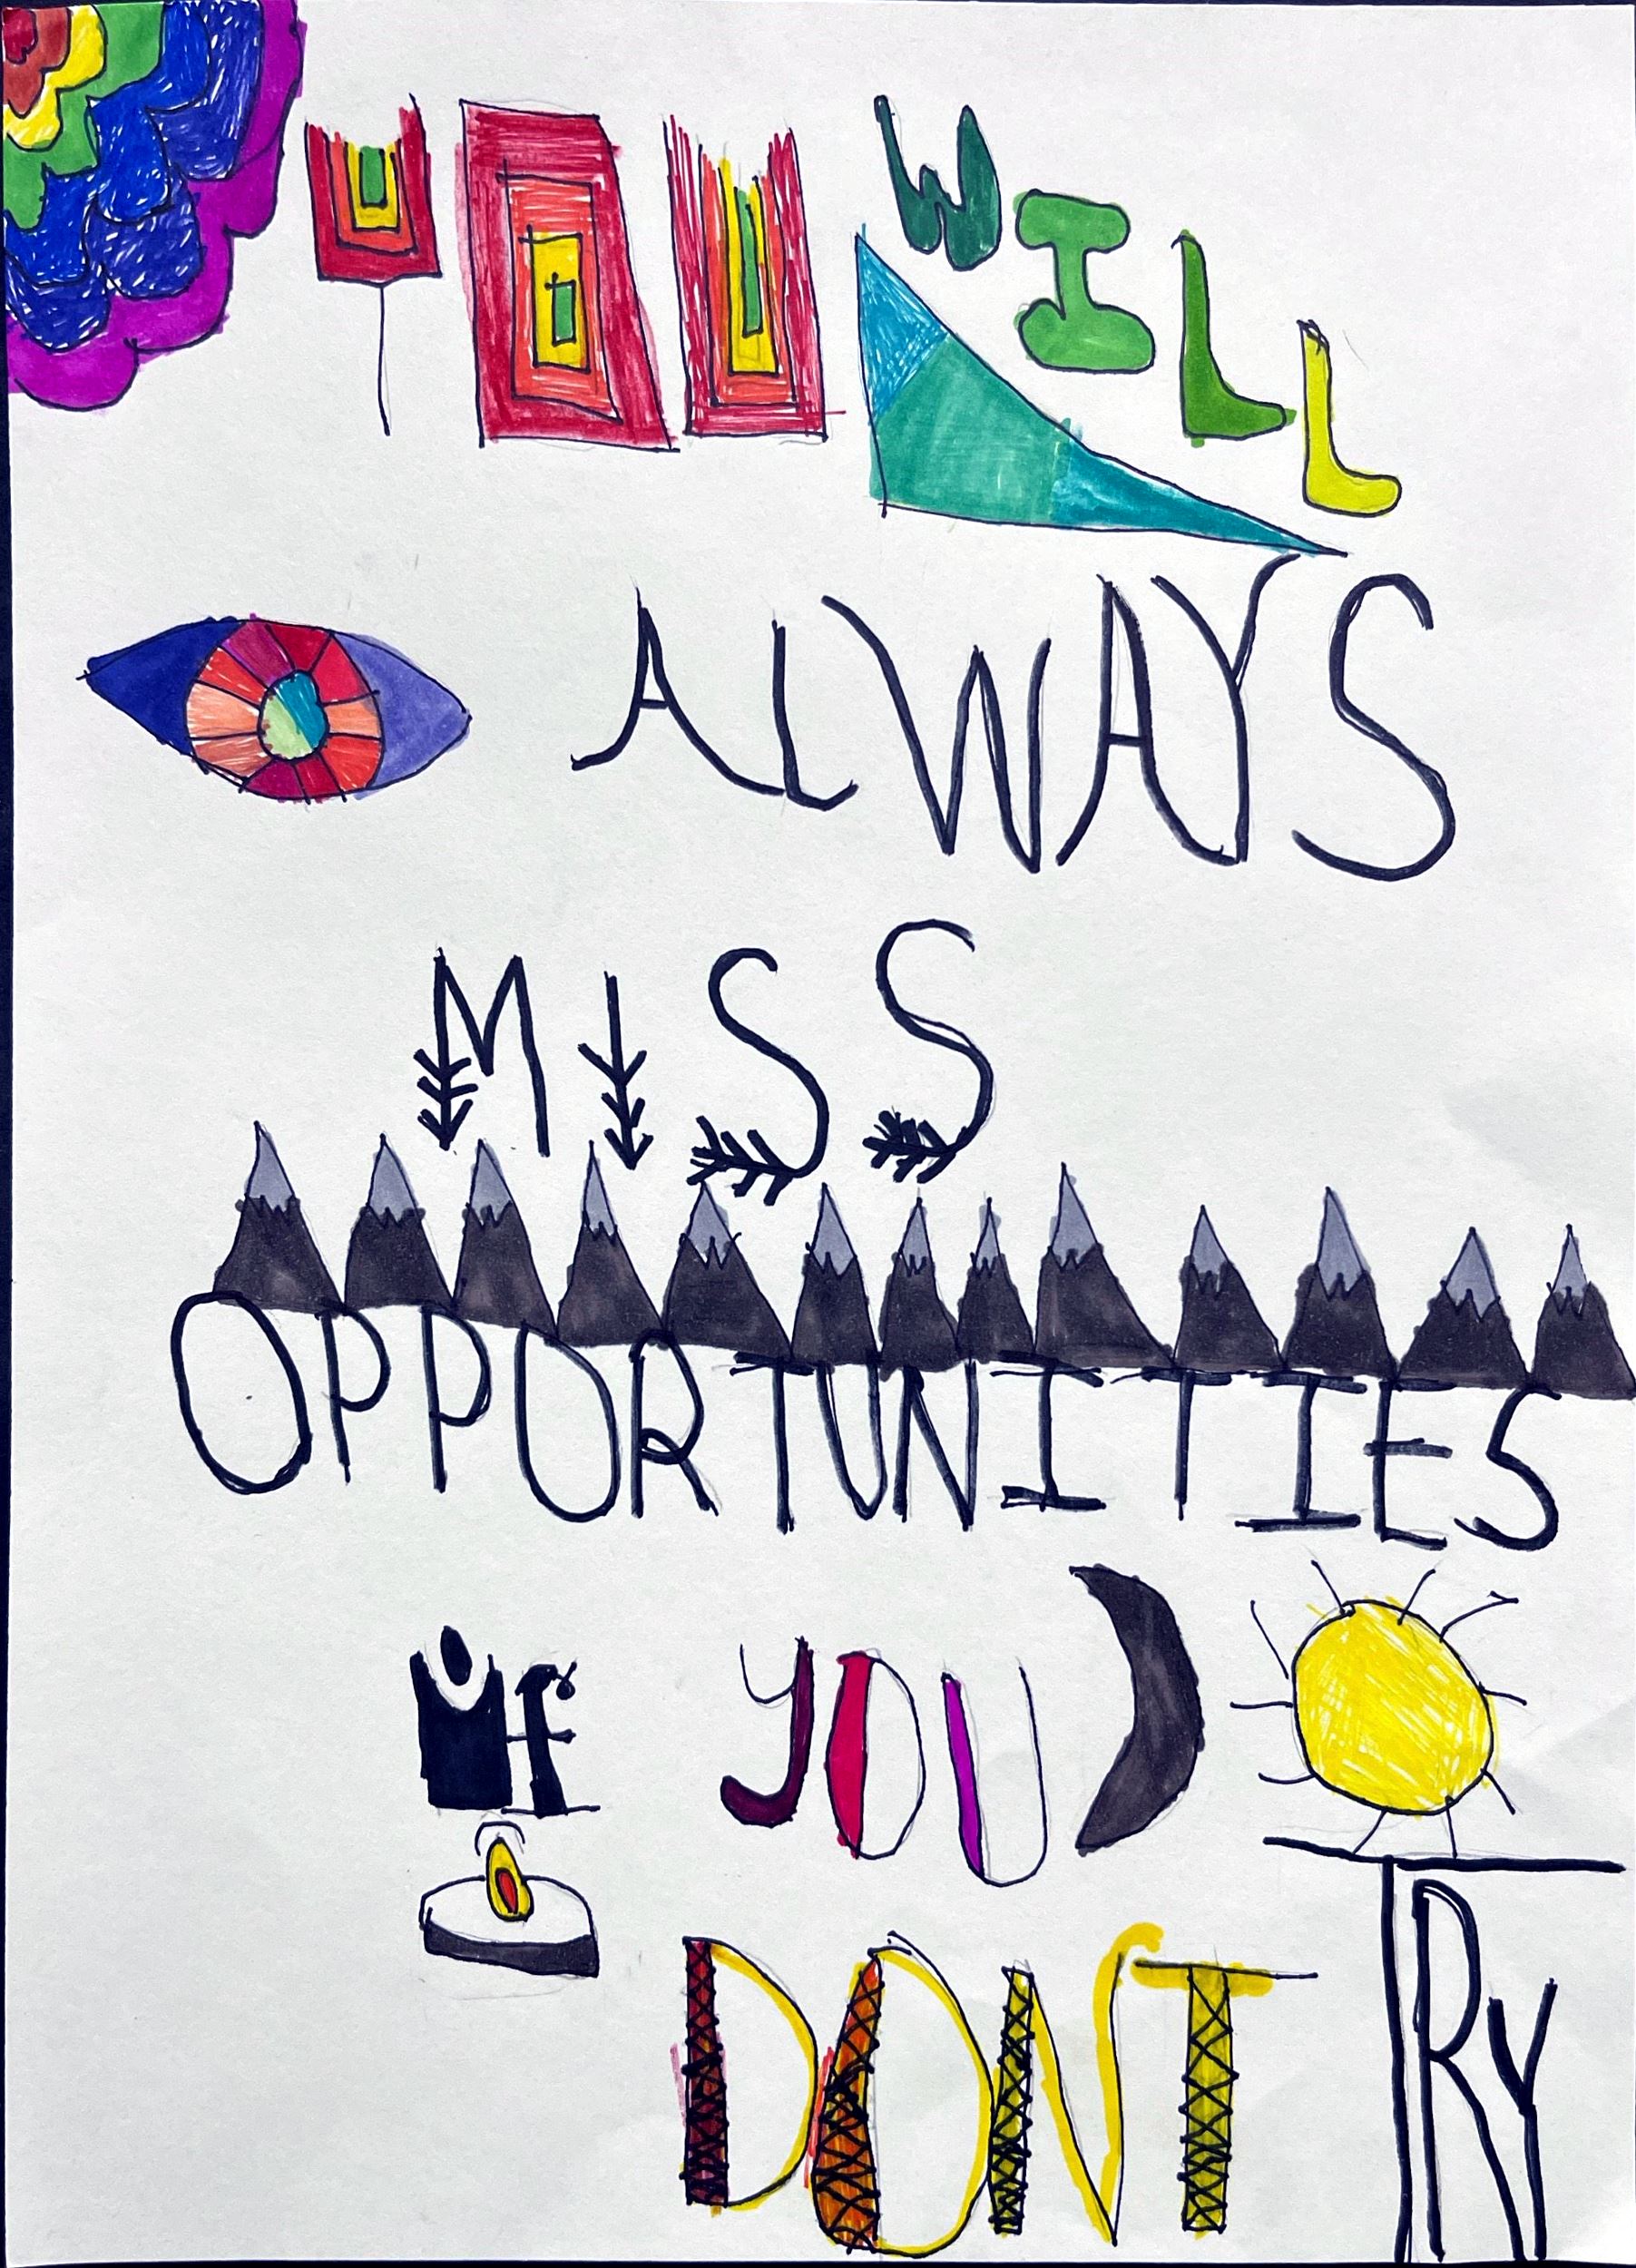 YOU WILL
ALWAYS
MISS
OPPORTUNITIES
if YOU
DONT TRY